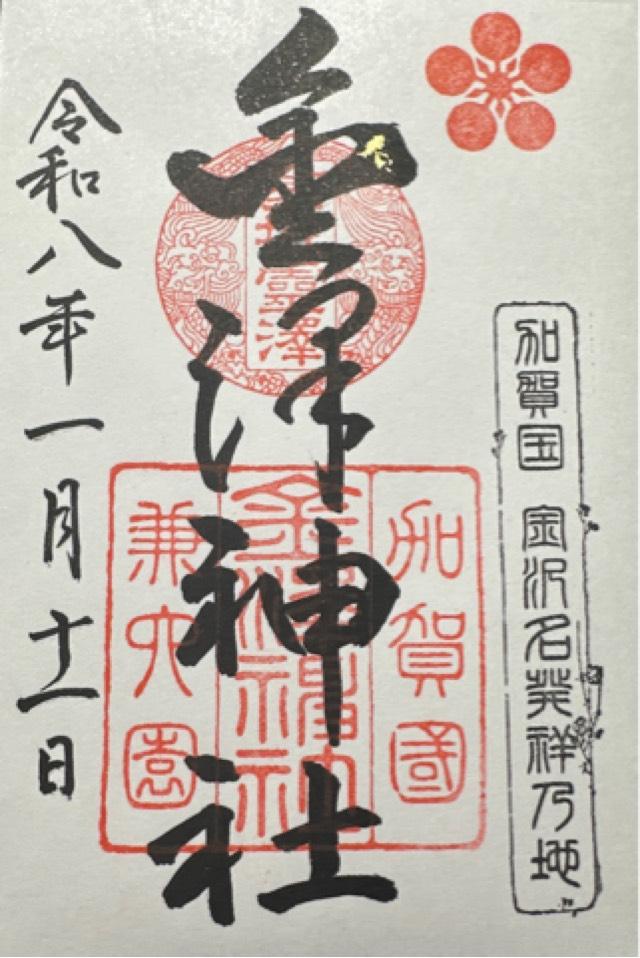 加賀国 金沢名発祥乃地
金澤神社
加賀國
金澤神社
兼六園
令和八年一月十一日